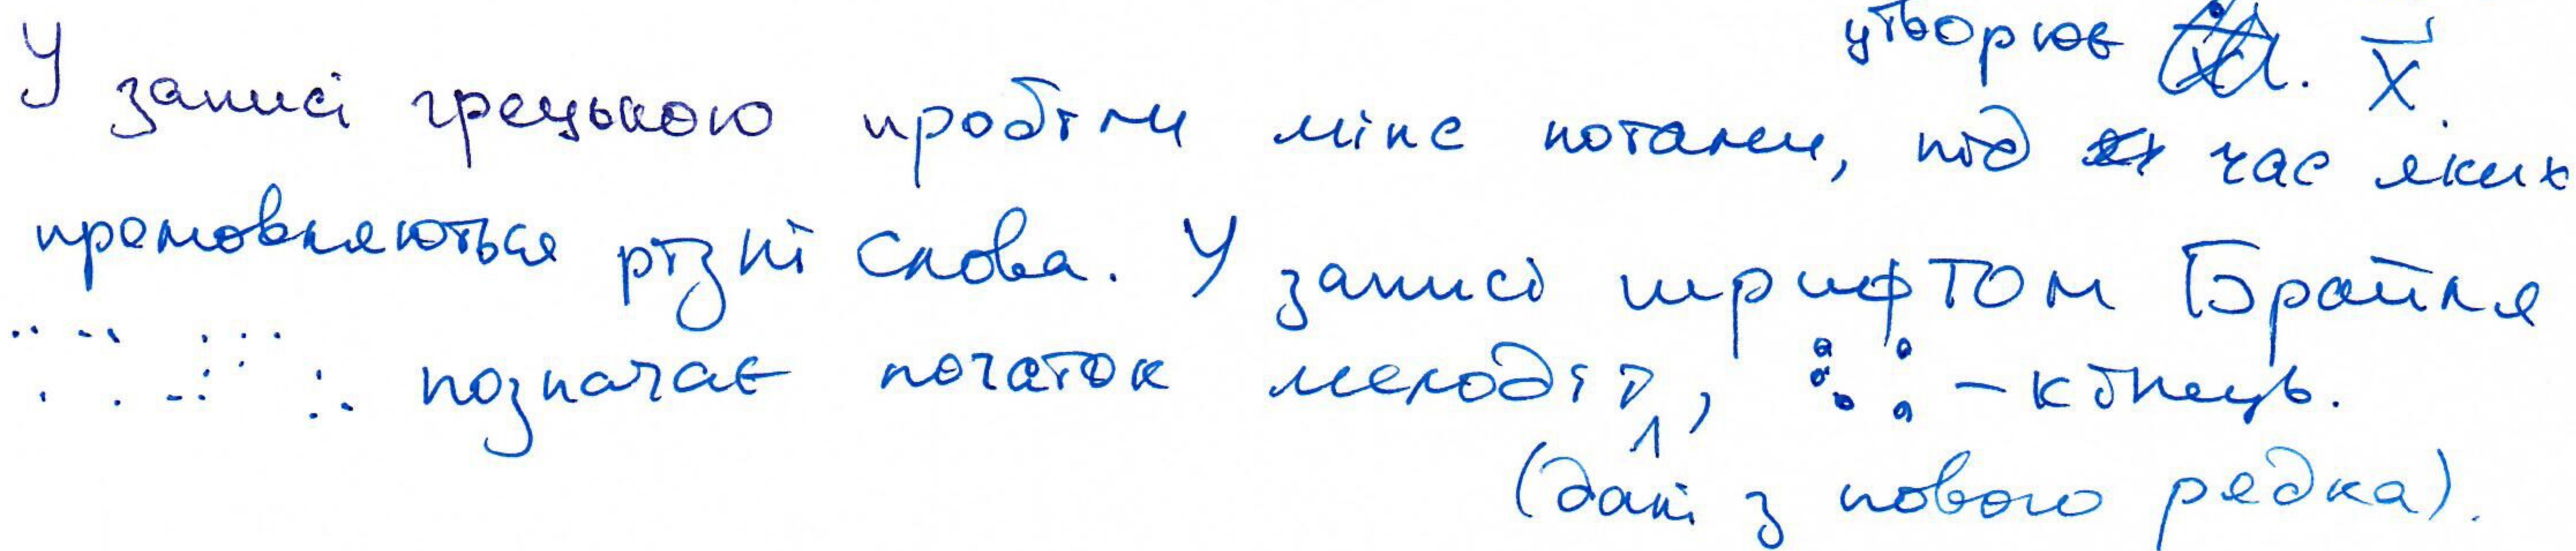 утворює X.
У записі грецькою пробіли між нотами, під час яких
промовляються різні слова. У записі шрифтом Брайля
позначає початок мелодії, ⠻ – кінець.
(далі з нового рядка).